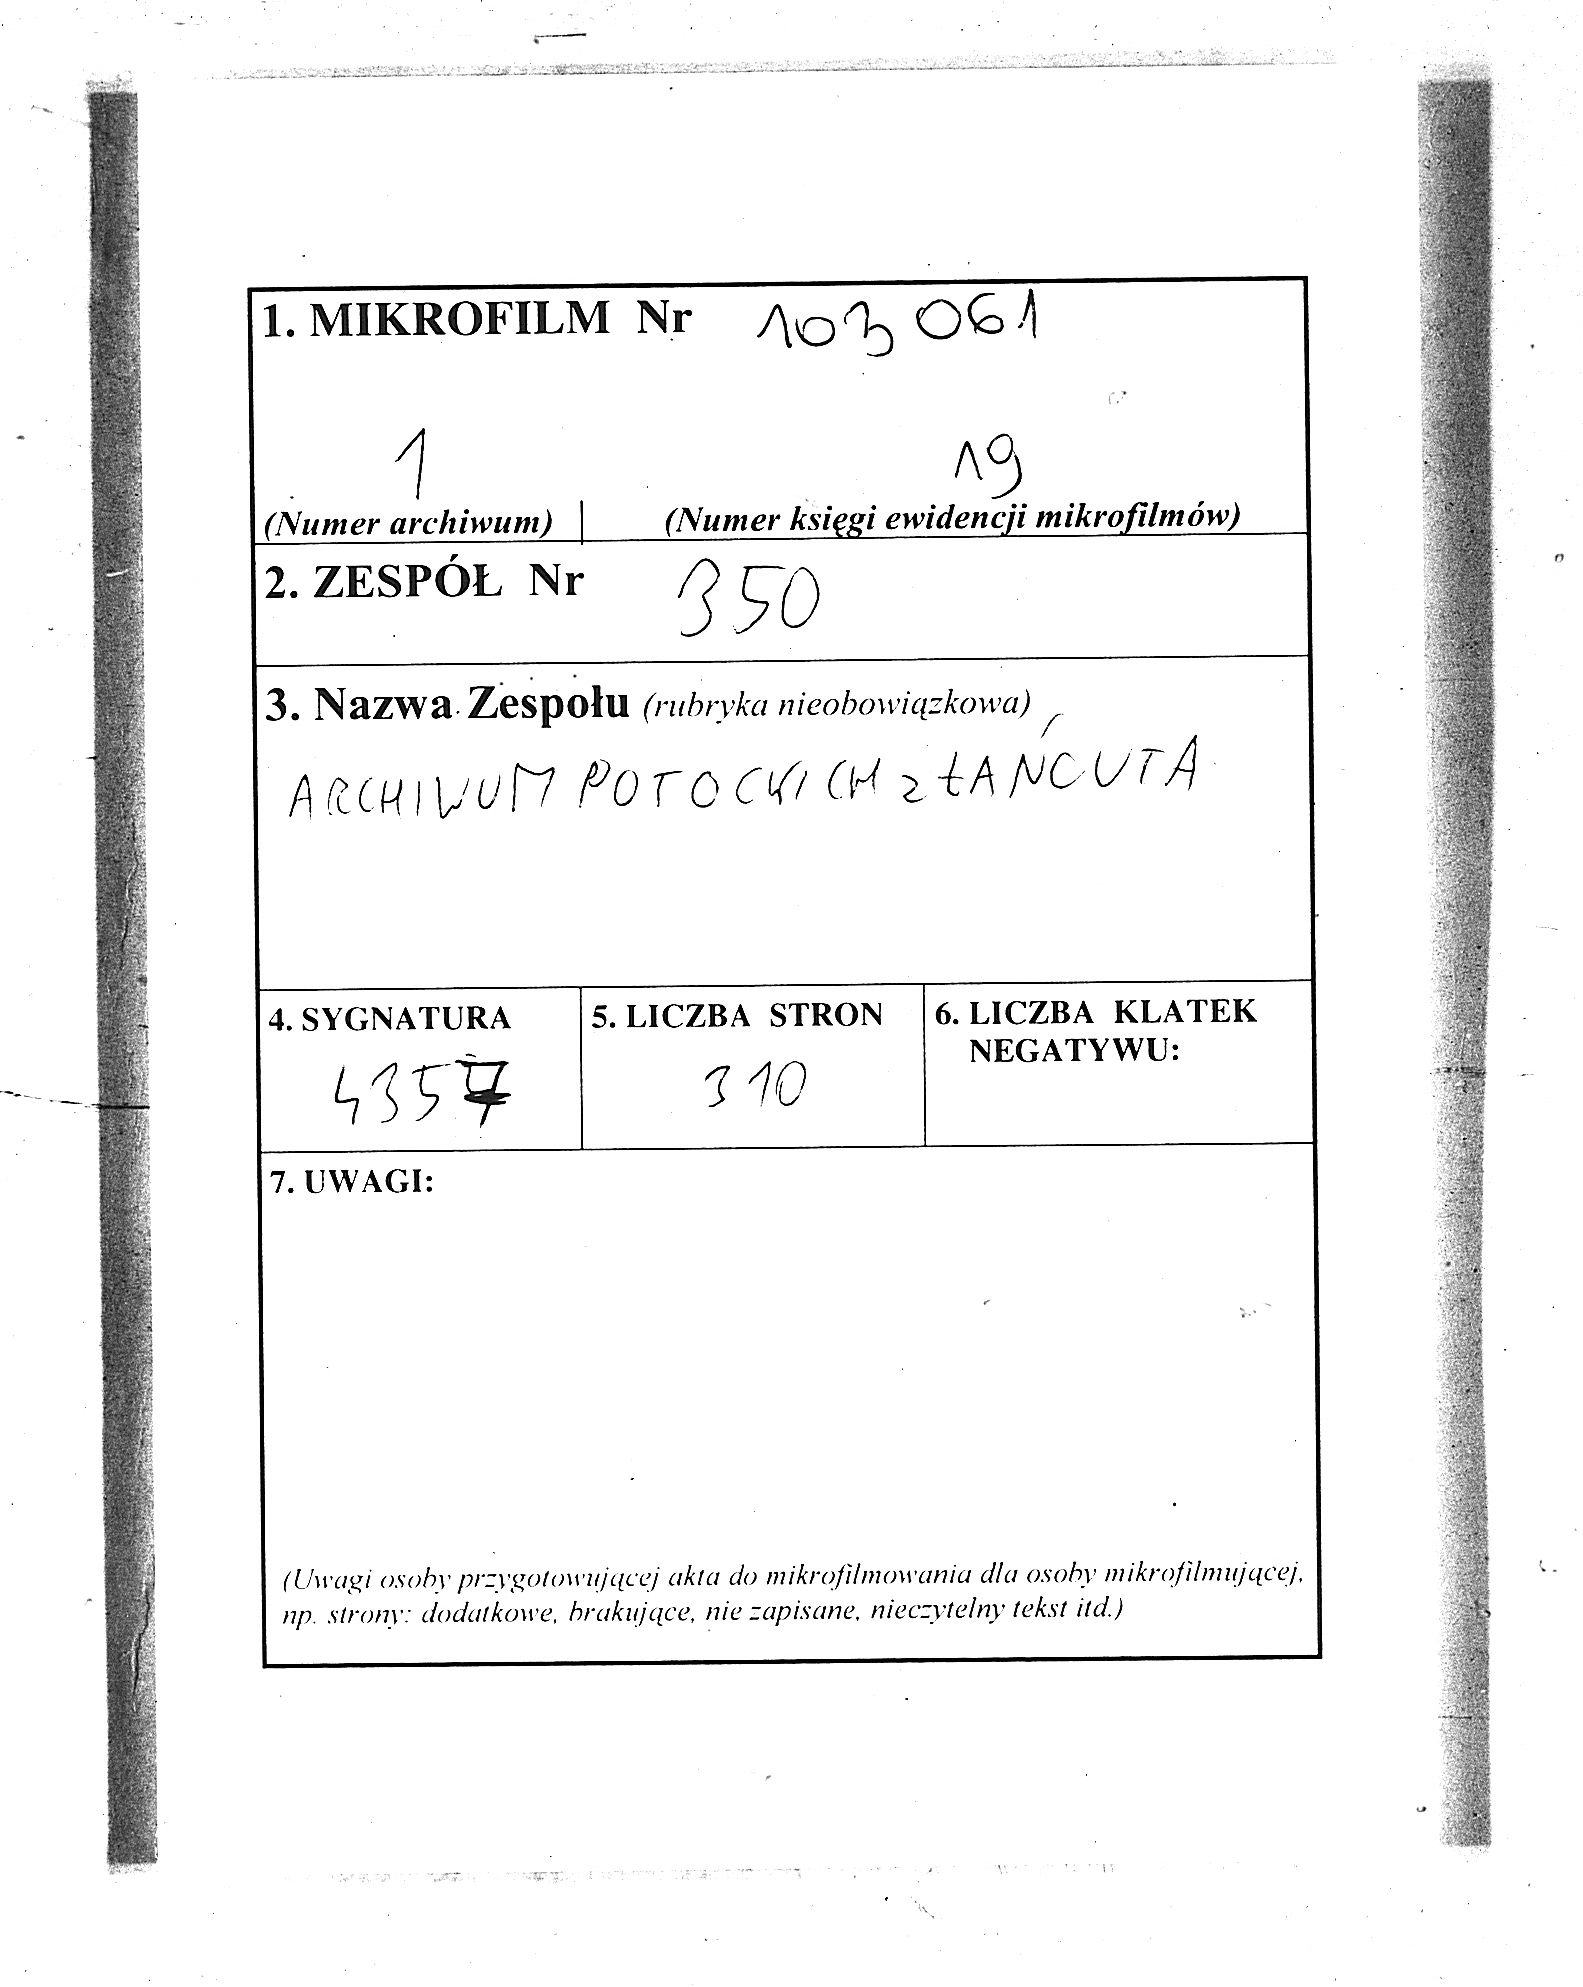 1. MIKROFILM Nr 103 061
1 19
(Numer archiwum) (Numer księgi ewidencji mikrofilmów)
2. ZESPÓŁ Nr 350
3. Nazwa Zespołu (rubryka nieobowiązkowa)
ARCHIWUM POTOCKICH z ŁAŃCUTA
4. SYGNATURA 5. LICZBA STRON 6. LICZBA KLATEK
NEGATYWU:
4357 310
7. UWAGI:
(Uwagi osoby przygotowującej akta do mikrofilmowania dla osoby mikrofilmującej,
np. strony: dodatkowe, brakujące, nie zapisane, nieczytelny tekst itd.)